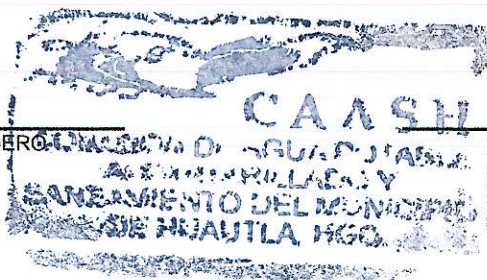 CAASH
ERO
DE AGUA POTABLE
ALCANTARILLADO Y
SANEAMIENTO DEL MUNICIPIO
DE HUAUTLA HGO.